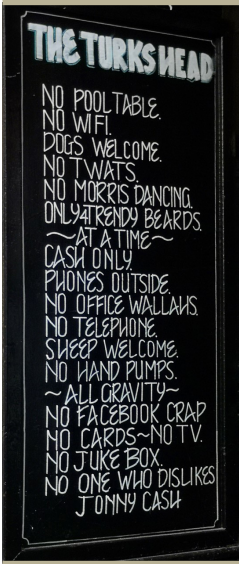 THE TURKS HEAD
NO POOL TABLE.
NO WIFI.
DOGS WELCOME.
NO TWATS.
NO MORRIS DANCING.
ONLY 4 TRENDY BEARDS.
~AT A TIME~
CASH ONLY.
PHONES OUTSIDE.
NO OFFICE WALLAHS.
NO TELEPHONE.
SHEEP WELCOME.
NO HAND PUMPS.
~ALL GRAVITY~
NO FACEBOOK CRAP
NO CARDS~NO TV.
NO JUKE BOX.
NO ONE WHO DISLIKES
JONNY CASH